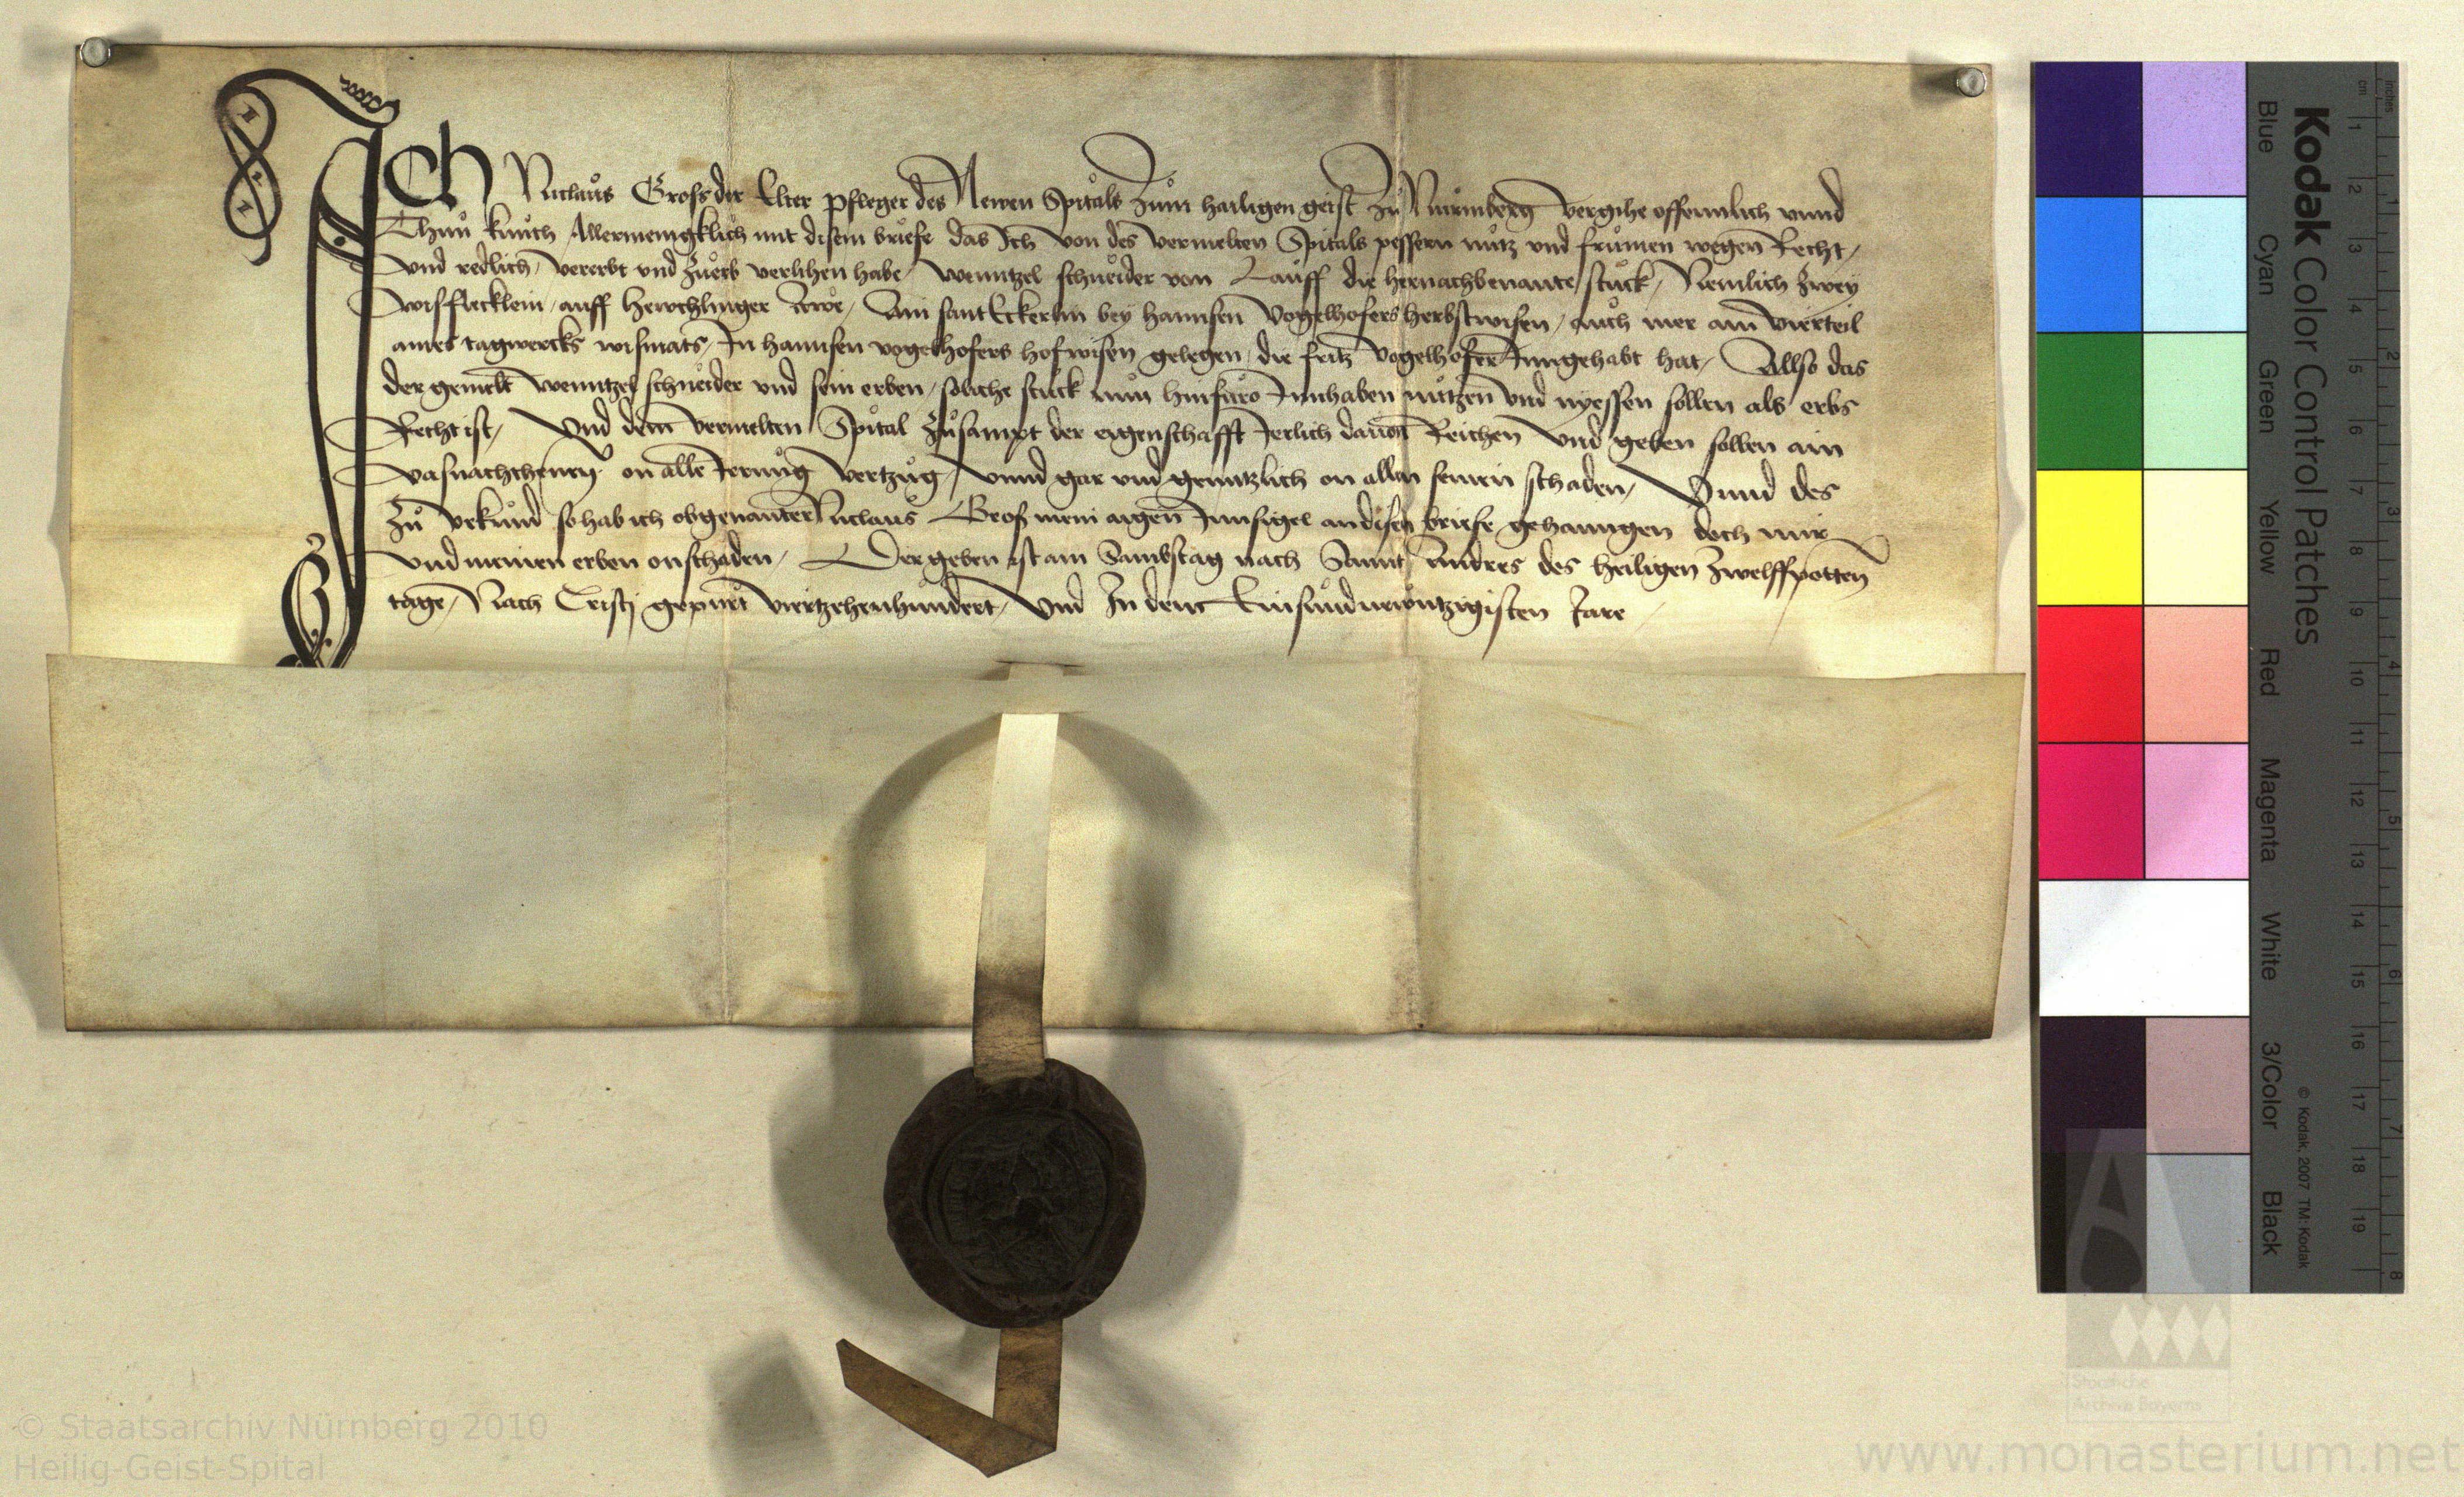 Ich Niclaus Gross der Elter pfleger des Newen Spitals zum hailigen geist zu Nuremberg vergihe offennlich vnnd
Thun kunth Allermenigklich mit disem briefe das Ich von des vermelten Spitals pessern nutz vnd frumen wegen Recht,
vnd redlich, vererbt vnd zuerb verlihen habe, wenntzel schneider von Lauff die hernachbenante stuck, Nemlich zwey
wisflecklein, auff Am bey hannsen Vogelhofers herbstwisen, auch mer ain vierteil
aines tagwercks wismats, In hannsen vogelhofers hofwisen gelegen, die fritz Vogelhofer Inngehabt hat, Allso das
der gemelt wenntzel schneider vnd sein erben, soliche stuck nun hinfuro Innhaben nutzen vnd nyessen sollen als erbs
Recht ist, Vnd dem vermelten Spital zusampt der eigenschafft Jerlich dauon Reichen vnd geben sollen ain
vasnachthenen on alle Jerung vertzug, vnnd gar vnd genntzlich on allen seinen schaden, Vnnd des
zu vrkund so hab ich obgenanter Niclaus Gross mein aigen Innsigel an disen briefe gehanngen doch mir
vnd meinen erben on schaden, Der geben ist am Sambstag nach Sannt Andres des heiligen zwelffpotten
tage, Nach Cristj gepurt viertzehenhundert, vnd In dem Einsundnewntzigisten Jare
Kodak Color Control Patches
Blue Cyan Green Yellow Red Magenta White 3/Color Black
© Kodak, 2007 TM: Kodak
cm 1 2 3 4 5 6 7 8 9 10 11 12 13 14 15 16 17 18 19
inches 1 2 3 4 5 6 7 8
Staatliche
Archive Bayerns
© Staatsarchiv Nürnberg 2010
Heilig-Geist-Spital
www.monasterium.net